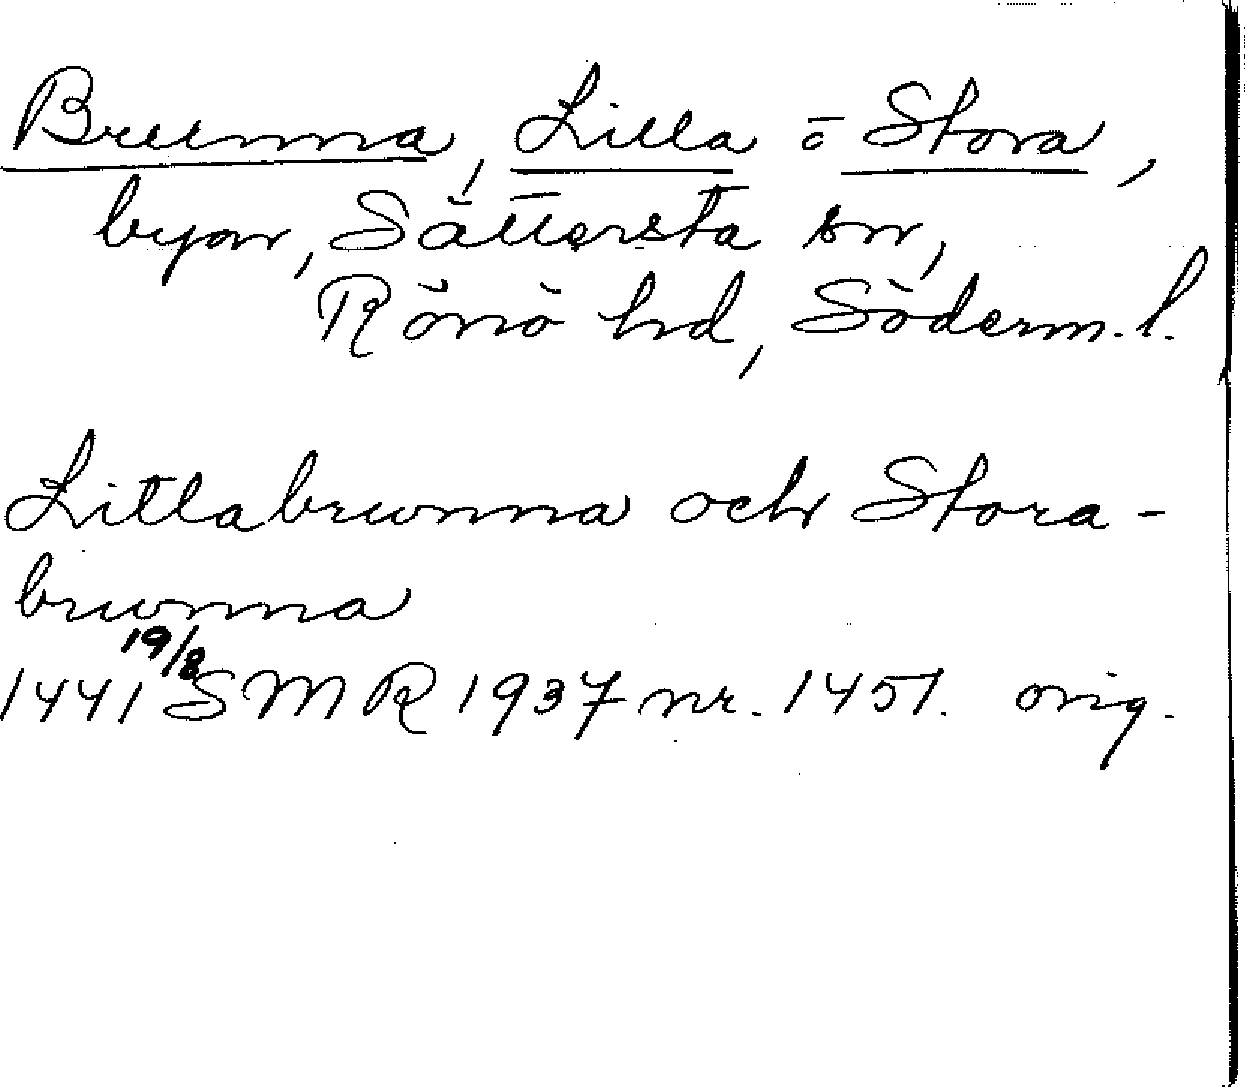 Brunna, Lilla o Stora,
byar, Sättersta sn,
Rönö hd, Söderm. l.
Litlabrunna och Stora-
brunna
1441 19/8 SMR 1937 nr. 1451. orig.